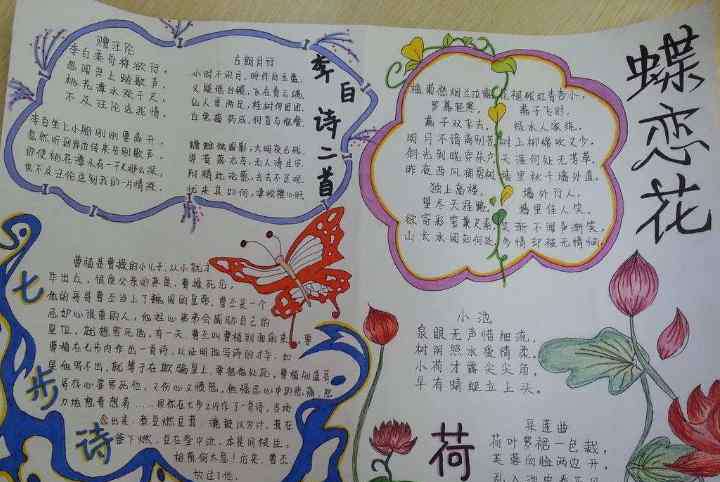 李白诗二首
赠汪伦
李白乘舟将欲行，
忽闻岸上踏歌声。
桃花潭水深千尺，
不及汪伦送我情。
李白坐上小船刚刚要离开，
忽然听到岸边传来告别歌声。
即使桃花潭水有一千尺那么深，
也不及汪伦送别我的一片情深。
古朗月行
小时不识月，呼作白玉盘。
又疑瑶台镜，飞在青云端。
仙人垂两足，桂树何团团。
白兔捣药成，问言与谁餐。
蟾蜍蚀圆影，大明夜已残。
蝶恋花
槛菊愁烟兰泣露
罗幕轻寒，
燕子双飞去。
明月不谙离别苦
斜光到晓穿朱户
昨夜西风凋碧树
独上高楼，
望尽天涯路。
欲寄彩笺兼尺素
山长水阔知何处
花褪残红青杏小，
燕子飞时，
绿水人家绕。
枝上柳绵吹又少，
天涯何处无芳草，
墙里秋千墙外道，
墙外行人，
墙里佳人笑。
笑渐不闻声渐悄，
多情却被无情恼
七步诗
曹植是曹操的小儿子，从小就才
华出众，
他的哥哥曹丕当上了魏国的皇帝，曹丕是一个
忌妒心很重的人，他担心弟弟会威胁自己的
皇位，就想害死他，有一天，曹丕叫曹植到面前来，要
曹植在七步内作出一首诗，以证明他写诗的才华，如
果他写不出，就等于在欺骗皇上，要把他处死，
釜下燃，豆在釜中泣，本是同根生，
相煎何太急！后来，曹丕
放过了他。
小池
泉眼无声惜细流，
树阴照水爱情柔，
小荷才露尖尖角，
早有蜻蜓立上头。
荷
采莲曲
荷叶罗裙一色裁，
芙蓉向脸两边开，